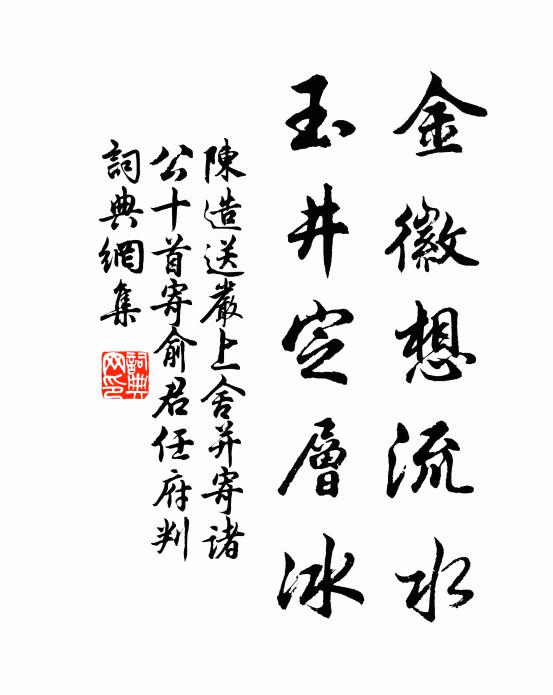 金徽想流水
玉井定層冰
陳造送嚴上舍并寄諸
公十首寄俞君任府判
詞典網集
詞典
网印